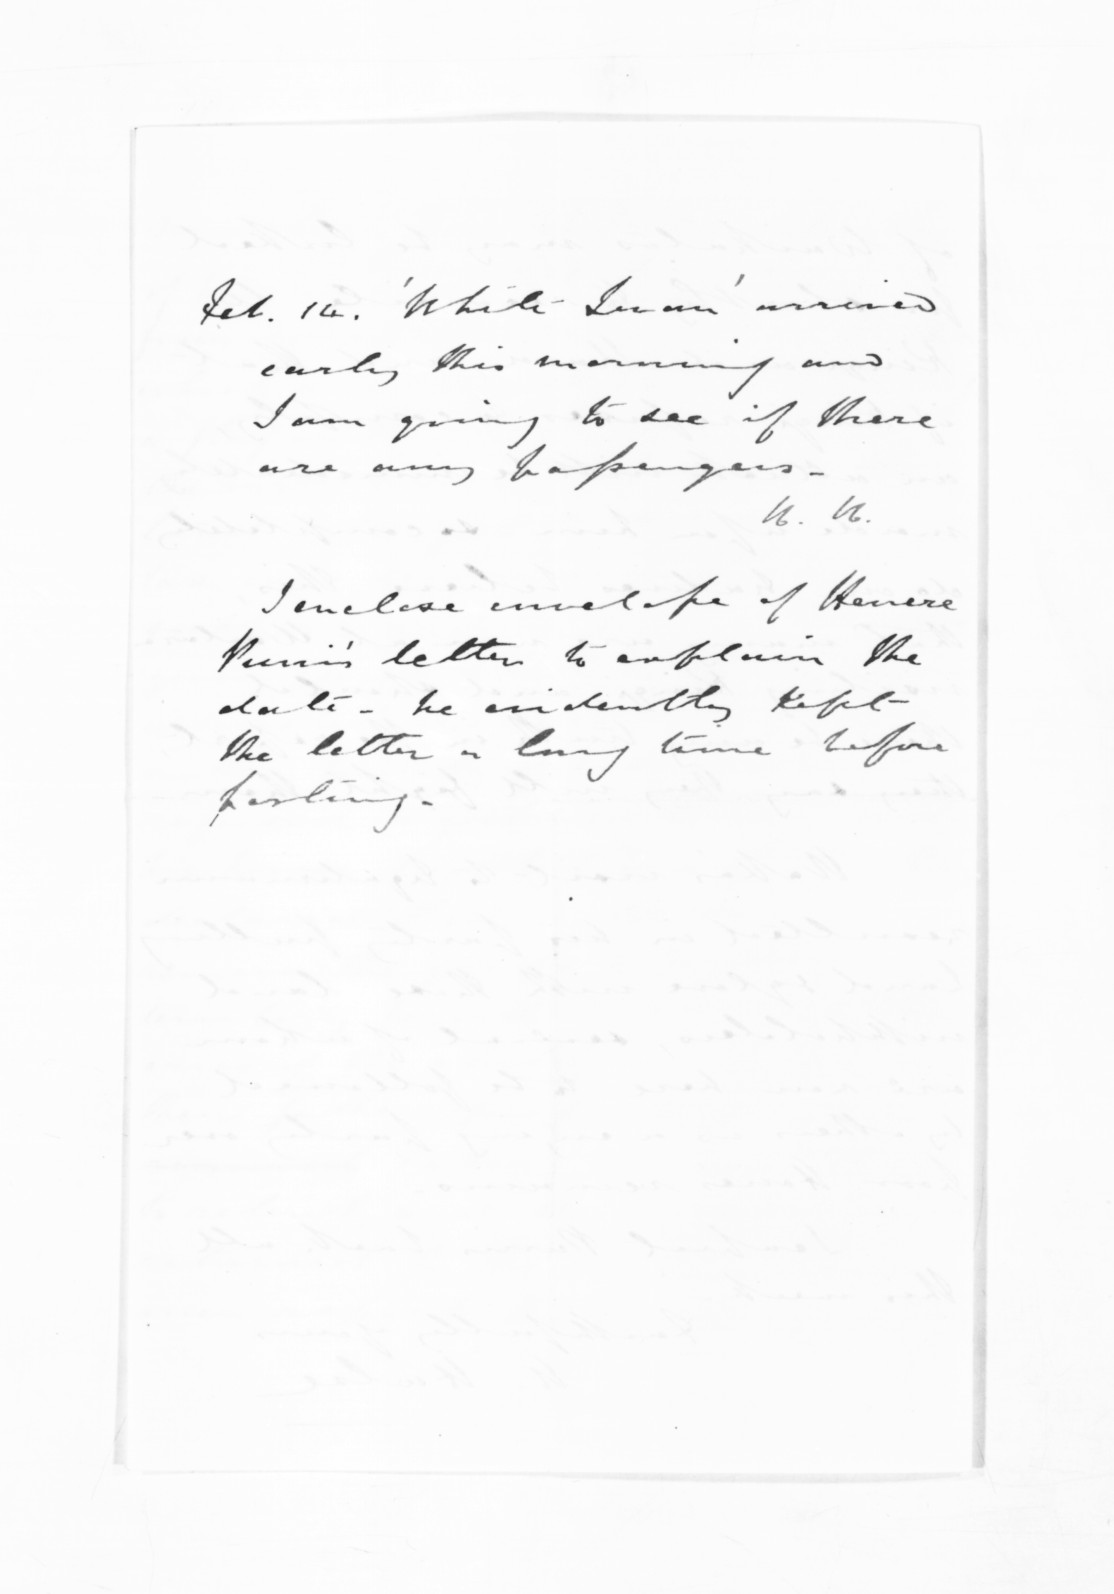 Feb. 14. 'White Swan' arrived
early this morning and
I am going to see if there
are any passengers -
H. H.
I enclose envelope of Henere
Puni's letter to explain the
date - he evidently kept
the letter a long time before
posting -